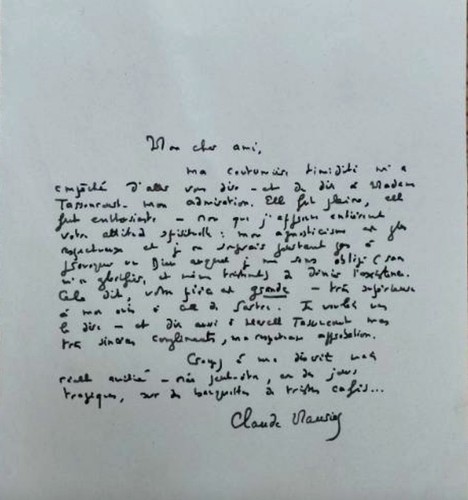 Mon cher ami,
ma coutumière timidité m'a
empêché d'aller vous dire - et de dire à Madame
Tassencourt - mon admiration. Elle fut pleine, elle
fut enthousiaste - non que j'approuve entièrement
votre attitude spirituelle : mon agnosticisme est plus
respectueux et je ne songerais justement pas à
un Dieu auquel je me sens obligé (sans
m'en glorifier, et même tristement) à dénier l'existence.
Cela dit, votre pièce est grande - très supérieure
à mon avis à celle de Sartre. Je voulais vous
le dire - et dire aussi à Marcelle Tassencourt mes
très sincères compliments, ma respectueuse approbation.
Croyez à ma discrète mais
réelle amitié - née peut-être, en des jours
tragiques, sur des banquettes de tristes cafés...
Claude Mauriac